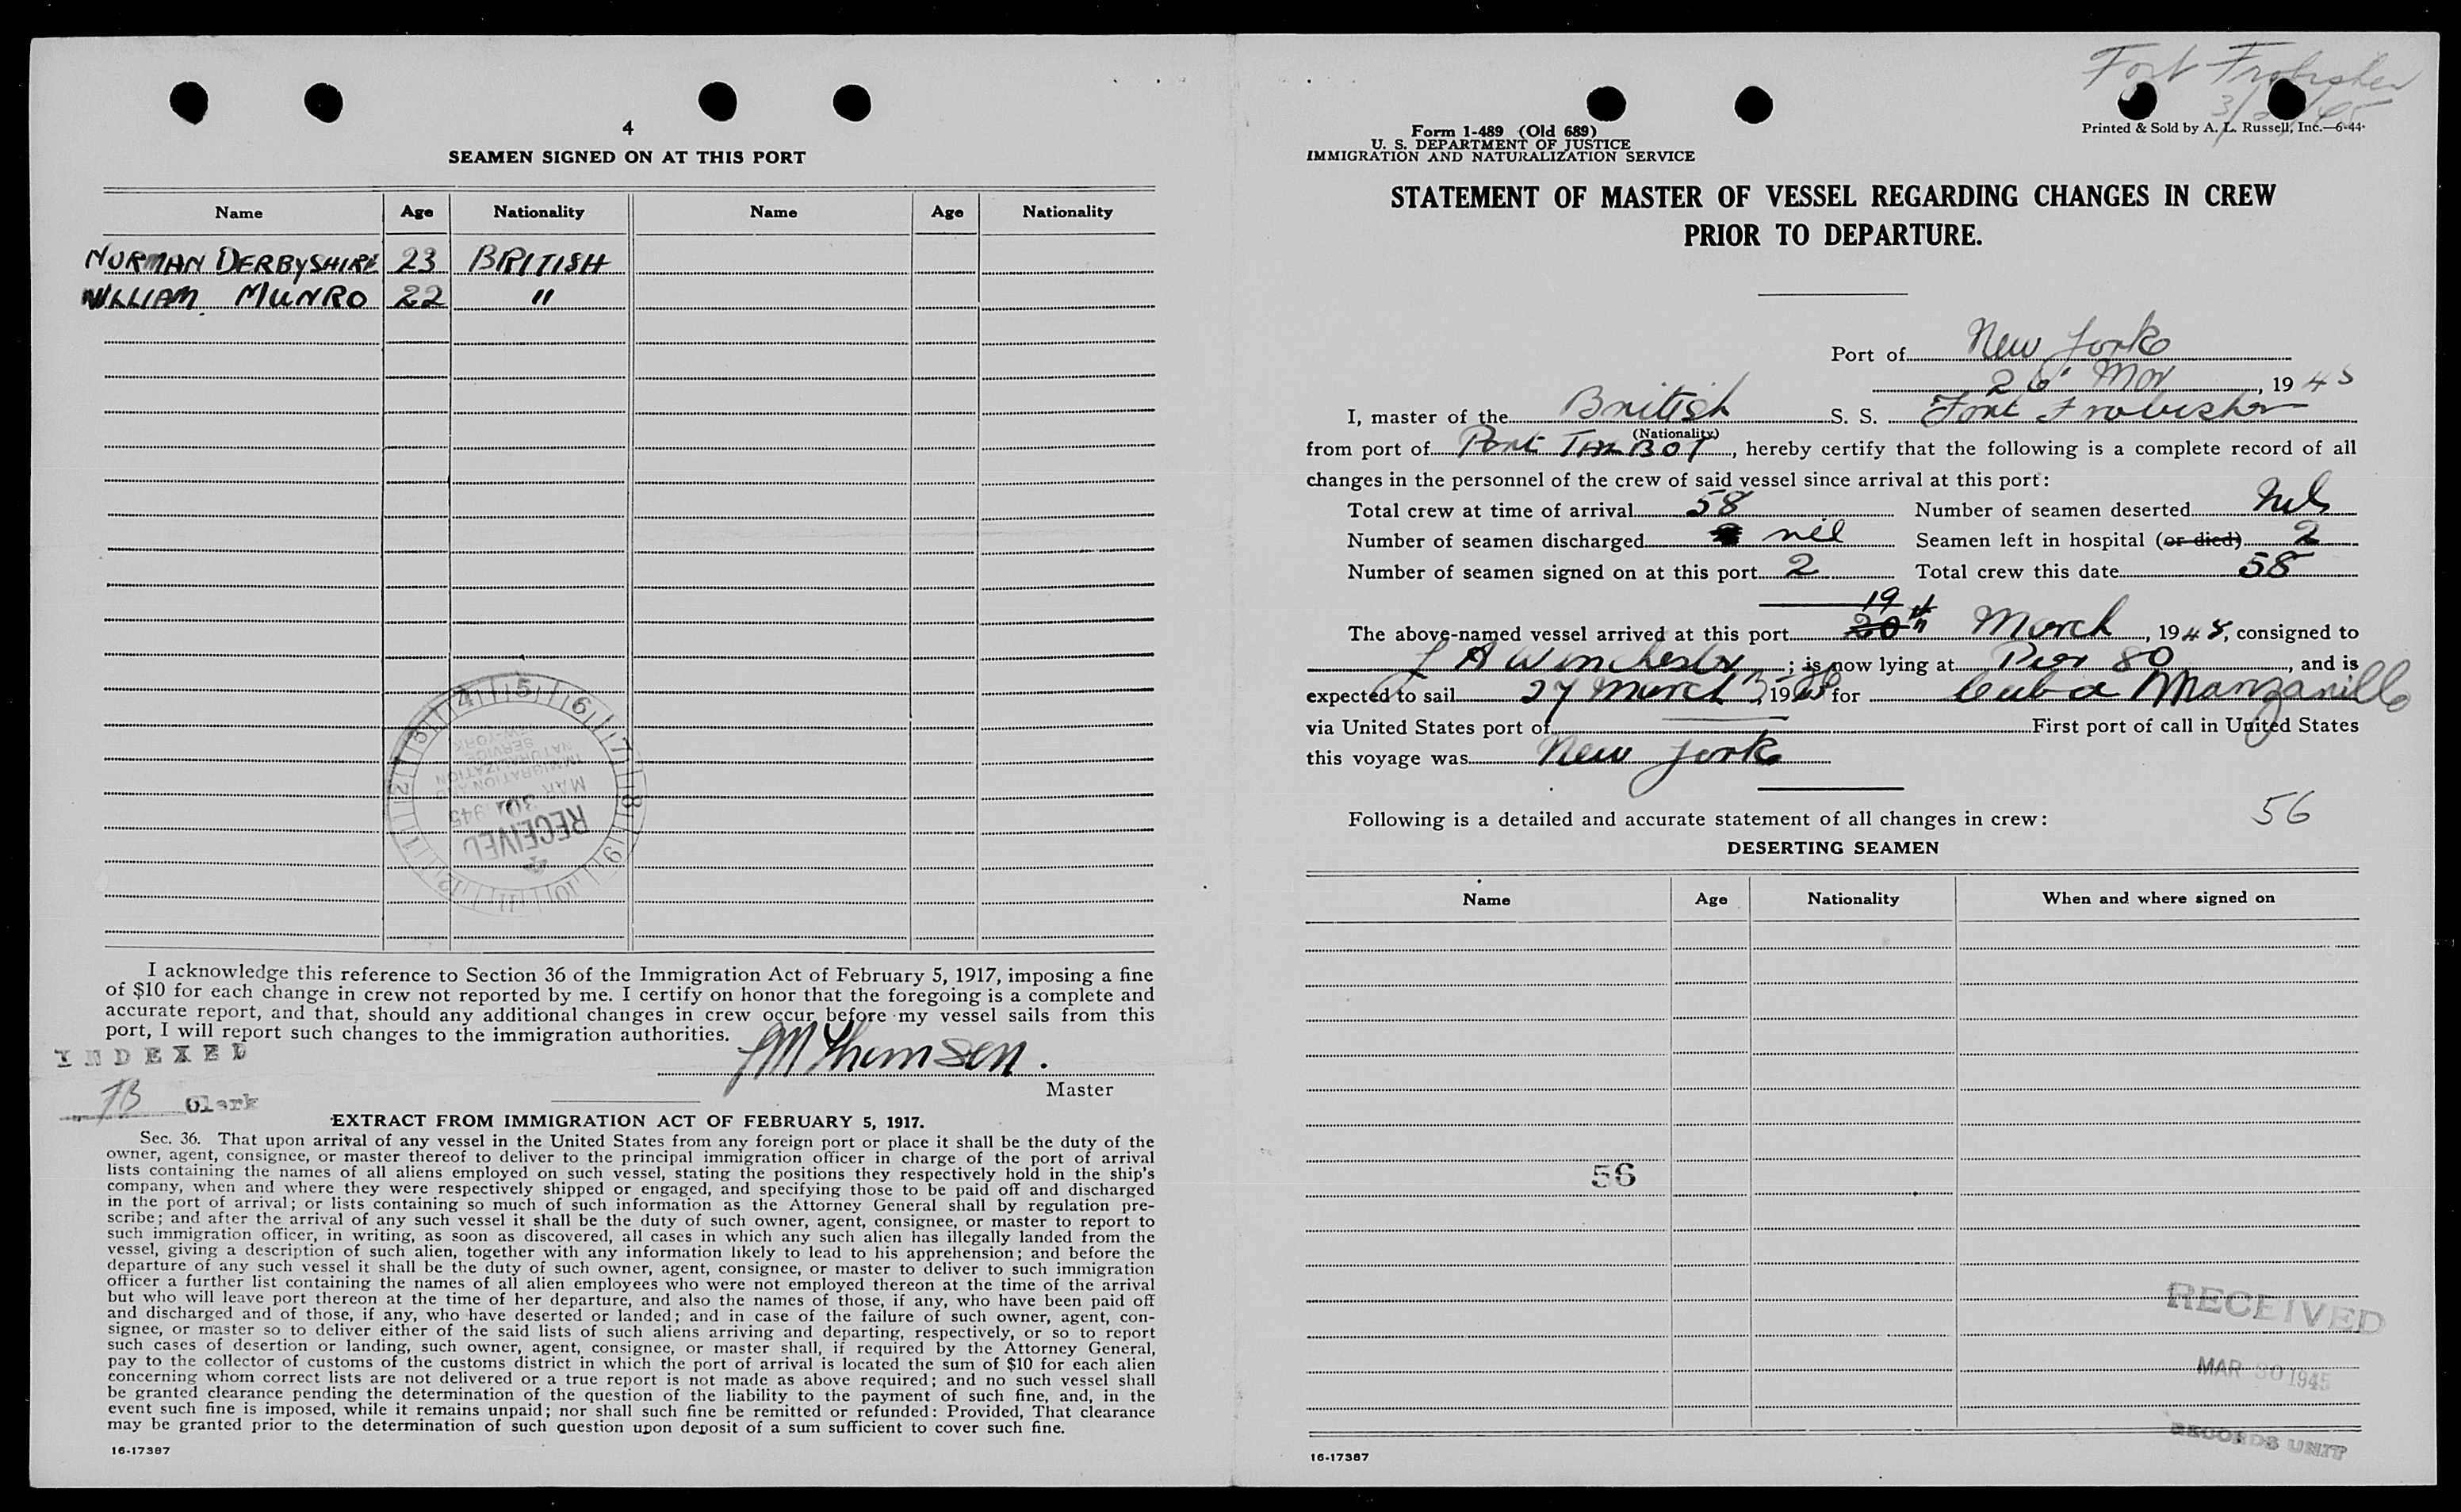 4
SEAMEN SIGNED ON AT THIS PORT
Name Age Nationality Name Age Nationality
NORMAN DERBYSHIRE 23 BRITISH
WILLIAM MUNRO 22 "
4 5 6 7 8 9 10 11 12 1 2 3
IMMIGRATION AND
NATURALIZATION
SERVICE
MAR 30 1945
RECEIVED
I acknowledge this reference to Section 36 of the Immigration Act of February 5, 1917, imposing a fine
of $10 for each change in crew not reported by me. I certify on honor that the foregoing is a complete and
accurate report, and that, should any additional changes in crew occur before my vessel sails from this
port, I will report such changes to the immigration authorities.
INDEXED
Thomson.
Master
Clerk
EXTRACT FROM IMMIGRATION ACT OF FEBRUARY 5, 1917.
Sec. 36. That upon arrival of any vessel in the United States from any foreign port or place it shall be the duty of the
owner, agent, consignee, or master thereof to deliver to the principal immigration officer in charge of the port of arrival
lists containing the names of all aliens employed on such vessel, stating the positions they respectively hold in the ship's
company, when and where they were respectively shipped or engaged, and specifying those to be paid off and discharged
in the port of arrival; or lists containing so much of such information as the Attorney General shall by regulation pre-
scribe; and after the arrival of any such vessel it shall be the duty of such owner, agent, consignee, or master to report to
such immigration officer, in writing, as soon as discovered, all cases in which any such alien has illegally landed from the
vessel, giving a description of such alien, together with any information likely to lead to his apprehension; and before the
departure of any such vessel it shall be the duty of such owner, agent, consignee, or master to deliver to such immigration
officer a further list containing the names of all alien employees who were not employed thereon at the time of the arrival
but who will leave port thereon at the time of her departure, and also the names of those, if any, who have been paid off
and discharged and of those, if any, who have deserted or landed; and in case of the failure of such owner, agent, con-
signee, or master so to deliver either of the said lists of such aliens arriving and departing, respectively, or so to report
such cases of desertion or landing, such owner, agent, consignee, or master shall, if required by the Attorney General,
pay to the collector of customs of the customs district in which the port of arrival is located the sum of $10 for each alien
concerning whom correct lists are not delivered or a true report is not made as above required; and no such vessel shall
be granted clearance pending the determination of the question of the liability to the payment of such fine, and, in the
event such fine is imposed, while it remains unpaid; nor shall such fine be remitted or refunded: Provided, That clearance
may be granted prior to the determination of such question upon deposit of a sum sufficient to cover such fine.
16-17387
Fort Frobisher
Form 1-489 (Old 689)
U. S. DEPARTMENT OF JUSTICE
IMMIGRATION AND NATURALIZATION SERVICE
Printed & Sold by A. L. Russell, Inc.—6-44
STATEMENT OF MASTER OF VESSEL REGARDING CHANGES IN CREW
PRIOR TO DEPARTURE.
Port of New York
26 Mar, 1945
I, master of the British S. S. Fort Frobisher
(Nationality)
from port of Port TALBOT, hereby certify that the following is a complete record of all
changes in the personnel of the crew of said vessel since arrival at this port:
Total crew at time of arrival 58 Number of seamen deserted Nil
Number of seamen discharged nil Seamen left in hospital (or died) 2
Number of seamen signed on at this port 2 Total crew this date 58
19
The above-named vessel arrived at this port 20th March, 1945, consigned to
J A Winchester; is now lying at Pier 80, and is
expected to sail 27 March, 1945 for Cuba Manzanillo
via United States port of First port of call in United States
this voyage was New York
Following is a detailed and accurate statement of all changes in crew: 56
DESERTING SEAMEN
Name Age Nationality When and where signed on
56
RECEIVED
MAR 30 1945
RECORDS UNIT
16-17387